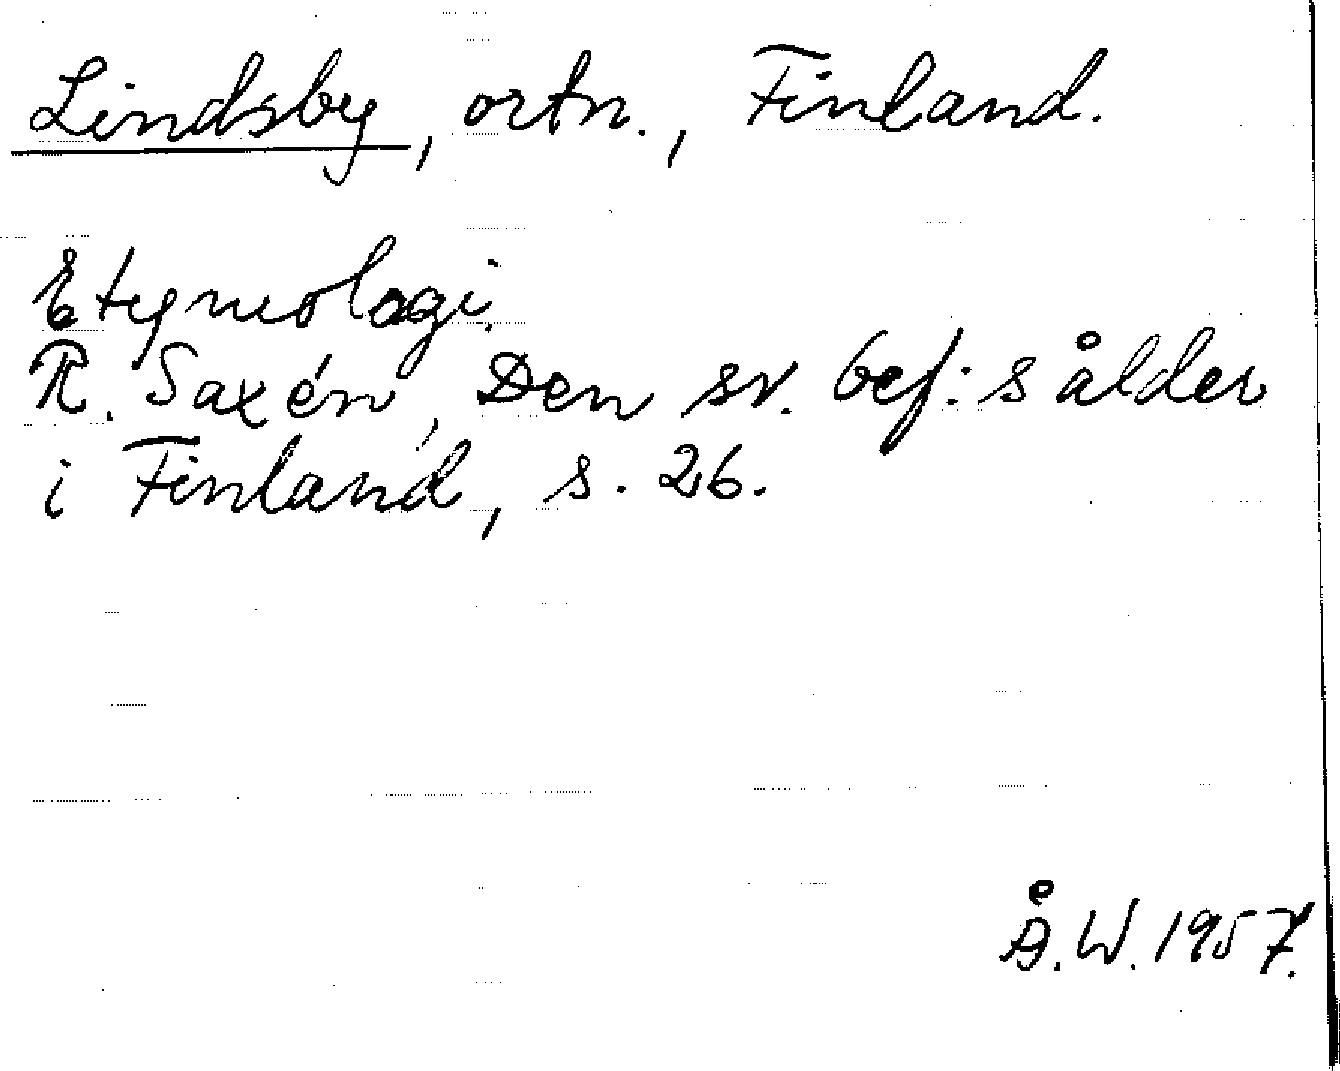 Lindsby, ortn., Finland.
Etymologi.
R. Saxén, Den sv. bef:s ålder
i Finland, s. 26.
Å.W. 1957.